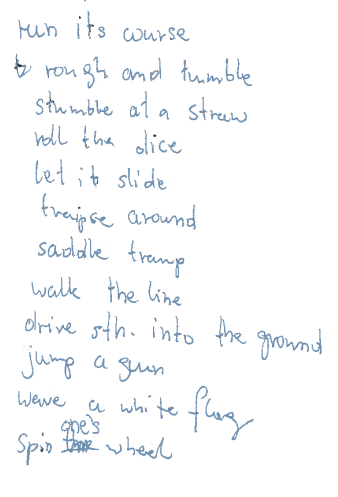 run its course
rough and tumble
stumble at a straw
roll the dice
let it slide
traipse around
saddle tramp
walk the line
drive sth. into the ground
jump a gun
wave a white flag
spin one's wheel